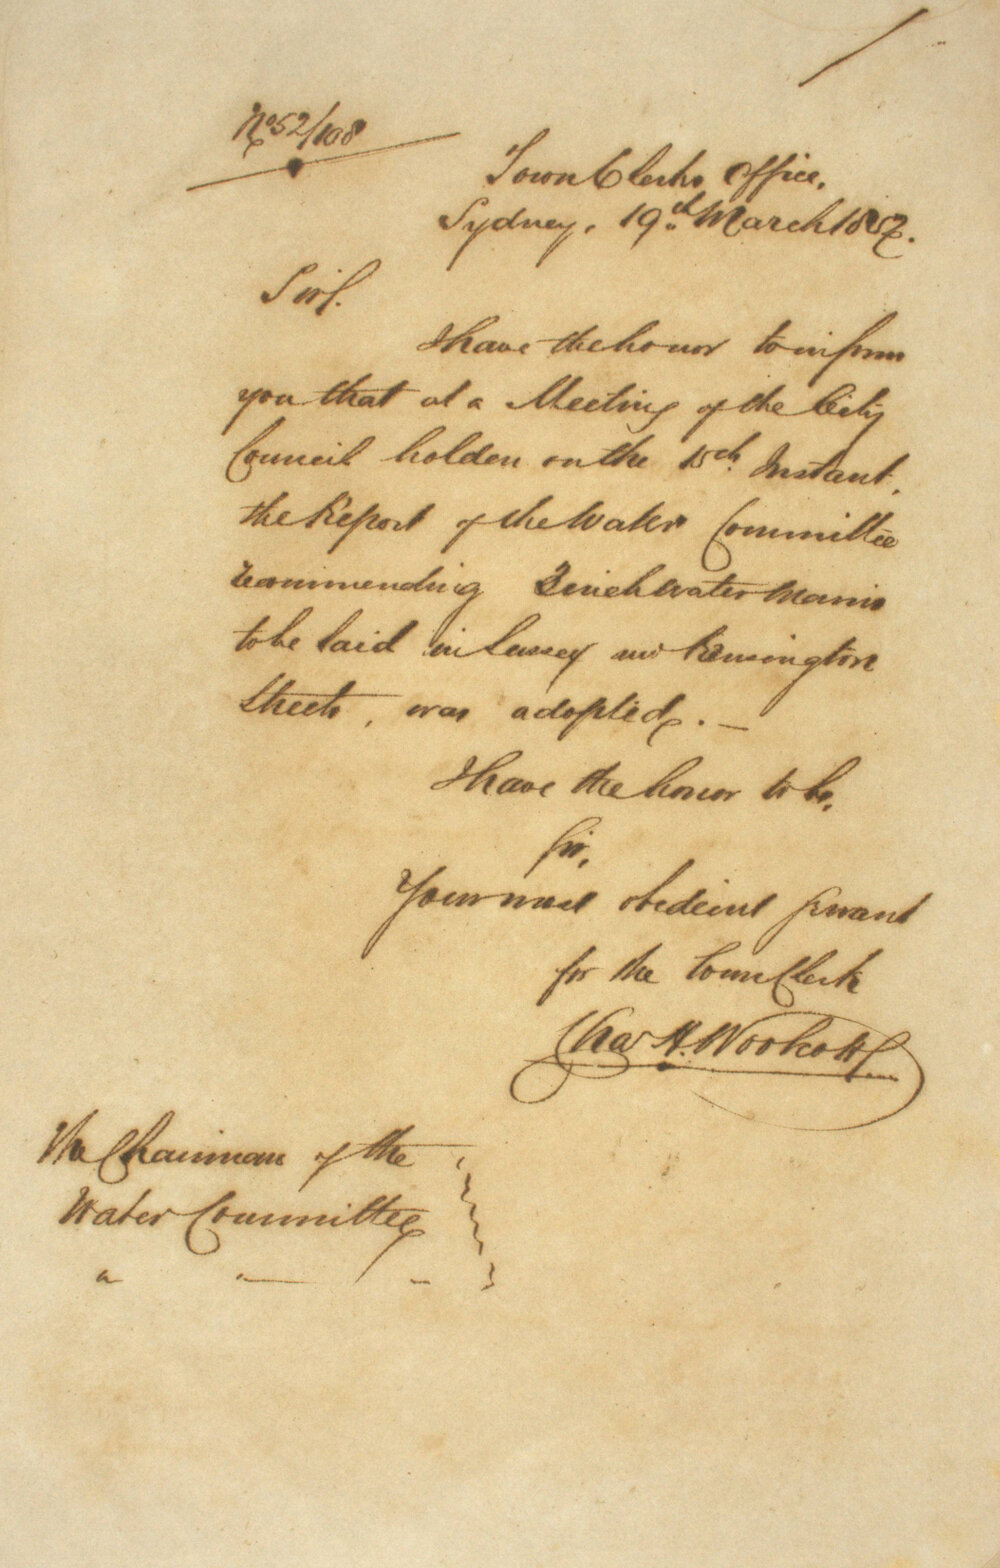 No 52/108
Town Clerks Office,
Sydney, 19th March 1852.
Sir,
I have the honor to inform
you that at a Meeting of the City
Council holden on the 15th Instant,
the Report of the Water Committee
recommending inch Water Mains
to be laid in Sussex and Kensington
Streets, was adopted. —
I have the honor to be,
Sir,
Your most obedient Servant
for the Town Clerk
Chas H. Woolcott
The Chairman of the
Water Committee
" " "